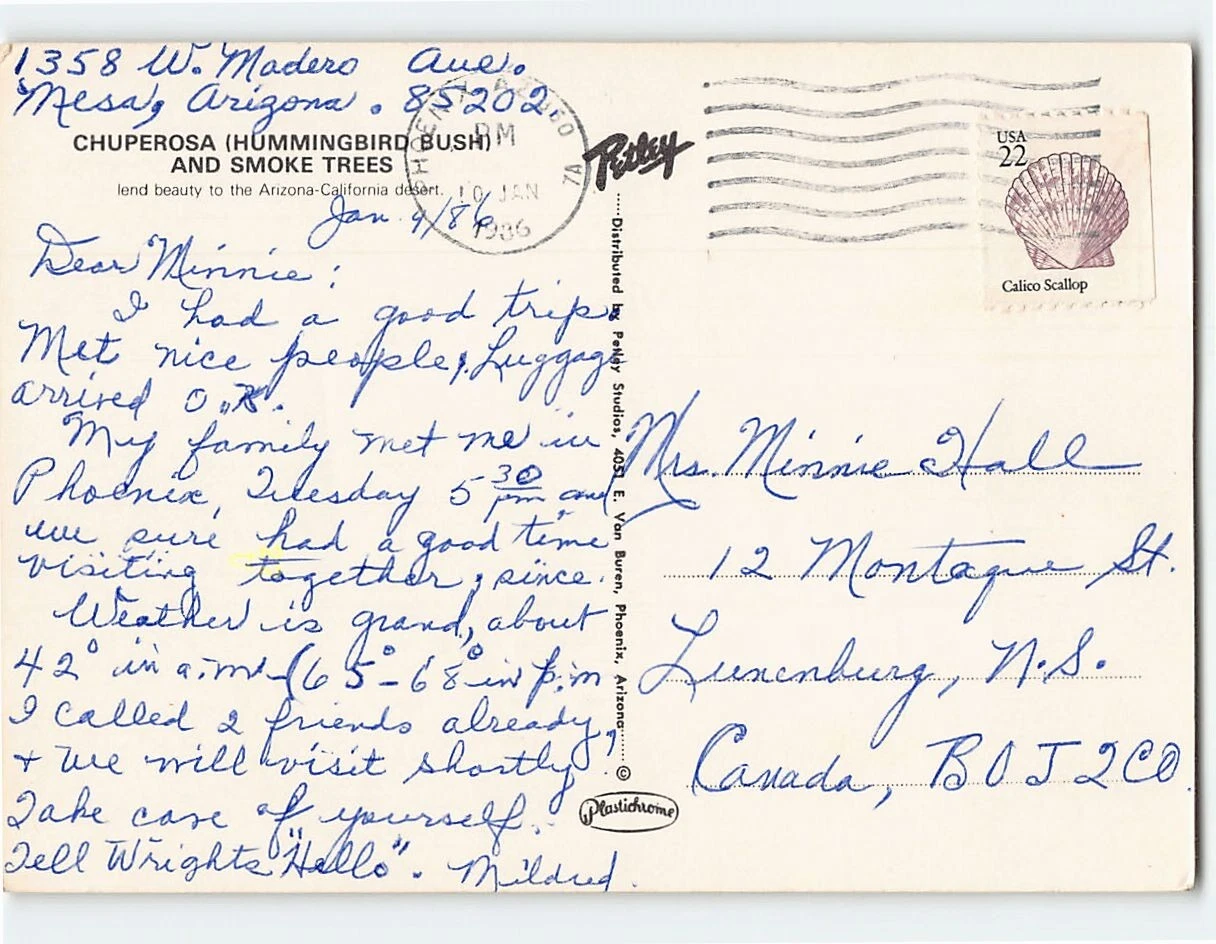 1358 W. Madero Ave.
Mesa, Arizona. 85202
CHUPEROSA (HUMMINGBIRD BUSH)
AND SMOKE TREES
lend beauty to the Arizona-California desert.
Jan 9/86
Dear Minnie:
I had a good trip.
Met nice people, Luggage
arrived O.K.
My family met me in
Phoenix, Tuesday 5 30 pm and
we sure had a good time
visiting together, since.
Weather is grand, about
42° in a.m. (65°-68° in p.m
I called 2 friends already,
+ we will visit shortly.
Take care of yourself.
Tell Wrights "Hello". Mildred.
PHOENIX, AZ
PM
10 JAN
1986
7A
Petley
Distributed by Petley Studios, 4051 E. Van Buren, Phoenix, Arizona
©
Plastichrome
USA
22
Calico Scallop
Mrs. Minnie Hall
12 Montague St.
Lunenburg, N.S.
Canada, B0J 2C0